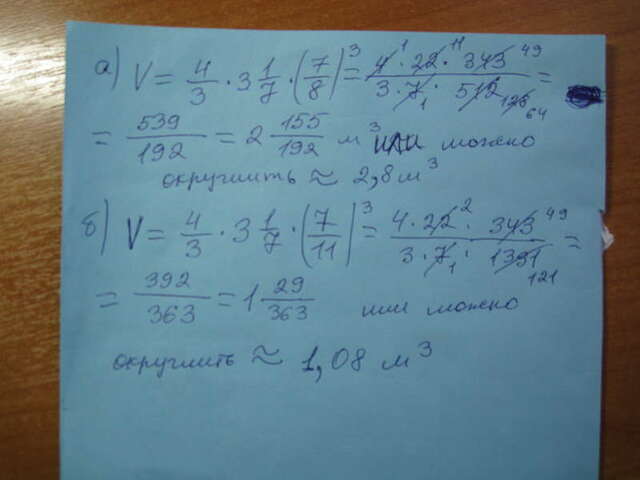 а) V = 4/3 · 3 1/7 · (7/8)^3 = 4 1 · 22 11 · 343 49 / 3 · 7 1 · 512 128 64 =
= 539/192 = 2 155/192 м^3 или можно
округлить ≈ 2,8 м^3
б) V = 4/3 · 3 1/7 · (7/11)^3 = 4 · 22 2 · 343 49 / 3 · 7 1 · 1331 121 =
= 392/363 = 1 29/363 или можно
округлить ≈ 1,08 м^3